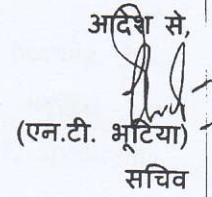 अदिश से,
(एन.टी. भूटिया)
सचिव